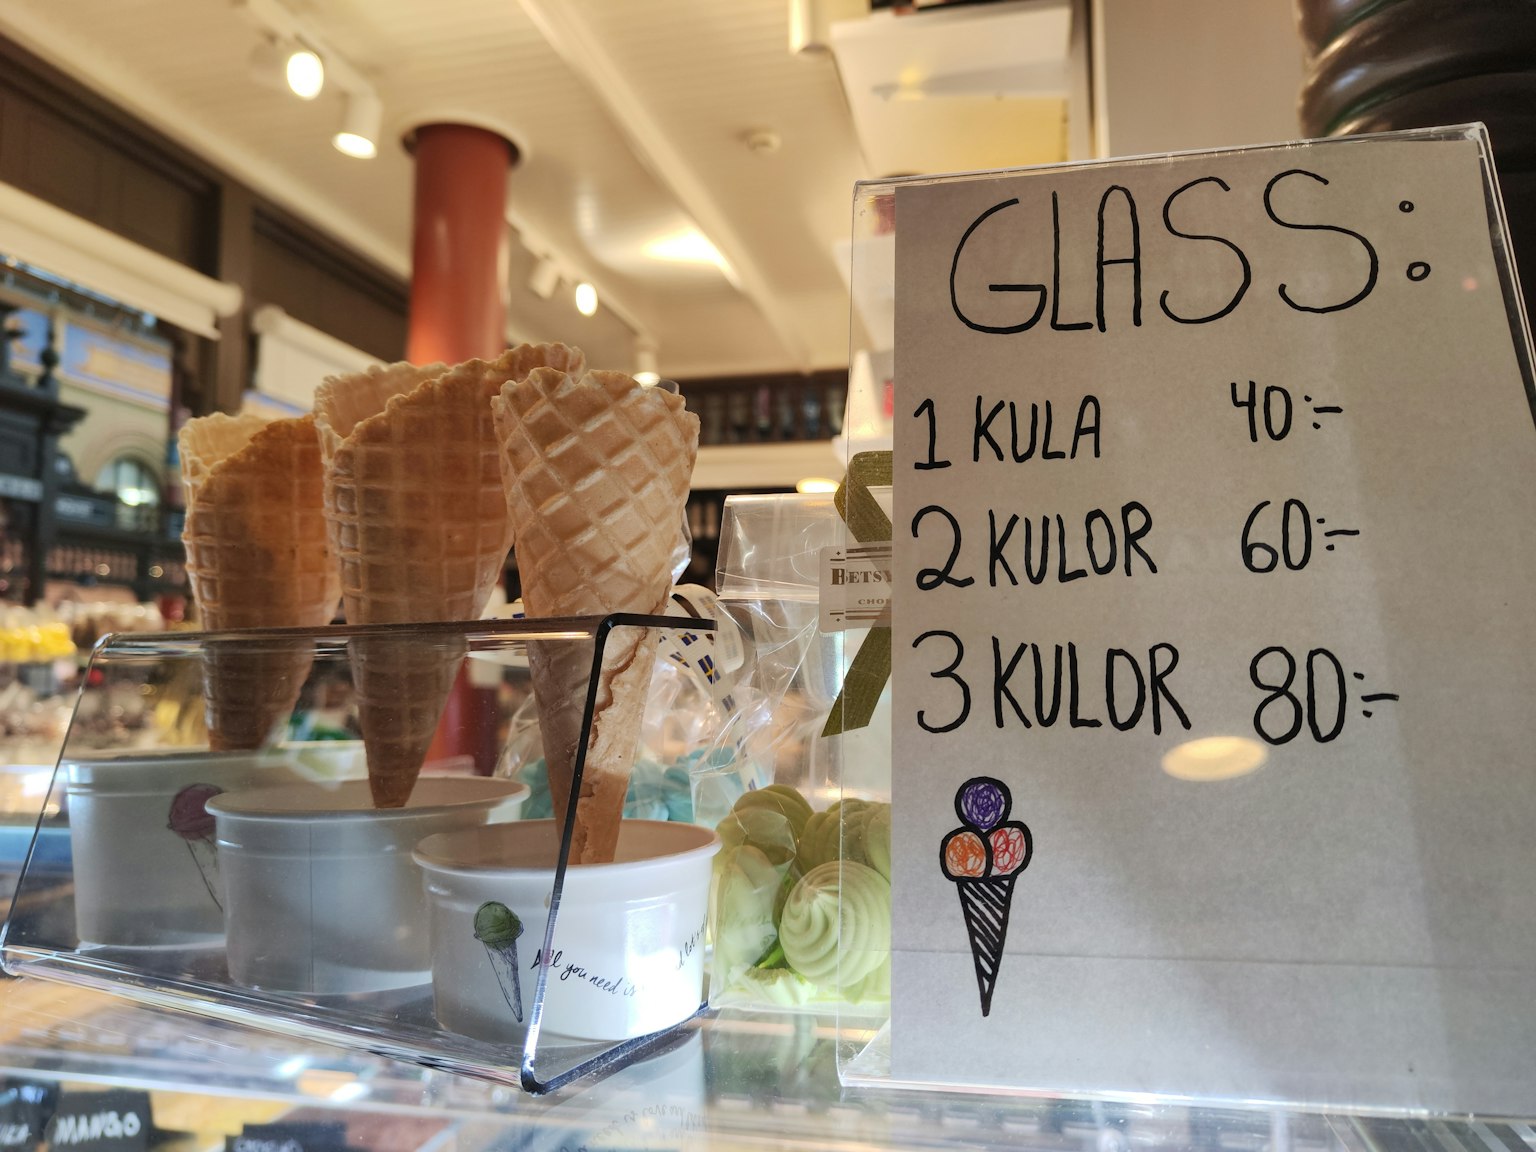 GLASS:
1 KULA 40:-
2 KULOR 60:-
3 KULOR 80:-
BETSY
All you need is
MANGO